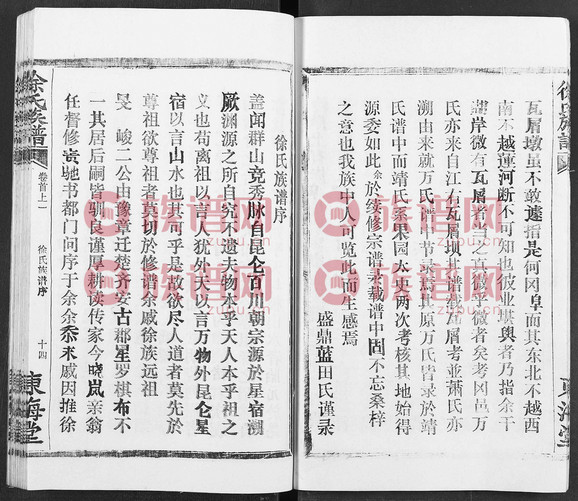 瓦屑墩虽不敢遽指是何冈阜而其东北不越西
南不越莲河断不可知也彼业堪舆者乃指余干
湖岸微有瓦屑者当之微乎微者矣考冈邑万
氏亦来自江右瓦屑坝其谱载瓦屑考並萧氏亦
溯由来就万氏谱中节录焉其原万氏皆录於靖
氏谱中而靖氏系果园太史两次考核其地始得
源委如此余於续修宗谱录载谱中固不忘桑梓
之意也我族中人可览此而生感焉
盛鼎蓝田氏谨录
徐氏族谱序
盖闻群山竞秀脉自昆仑百川朝宗源於星宿溯
厥渊源之所自究不遗夫物本乎天人本乎祖之
义也苟离祖以言人犹外天以言万物外昆仑星
宿以言山水也其可乎是故欲尽人道者莫先於
尊祖欲尊祖者莫切於修谱余戚徐族远祖
旻 峻二公由豫章迁楚齐安古郡星罗棋布不
一其居后嗣皆驯良谨厚耕读传家今晓岚亲翁
任督修赍驰书都门问序于余余忝末戚因推徐
徐氏族谱
卷首上一
徐氏族谱序
十四
東海堂
徐氏族譜
東海堂
族谱网
zupu.cn